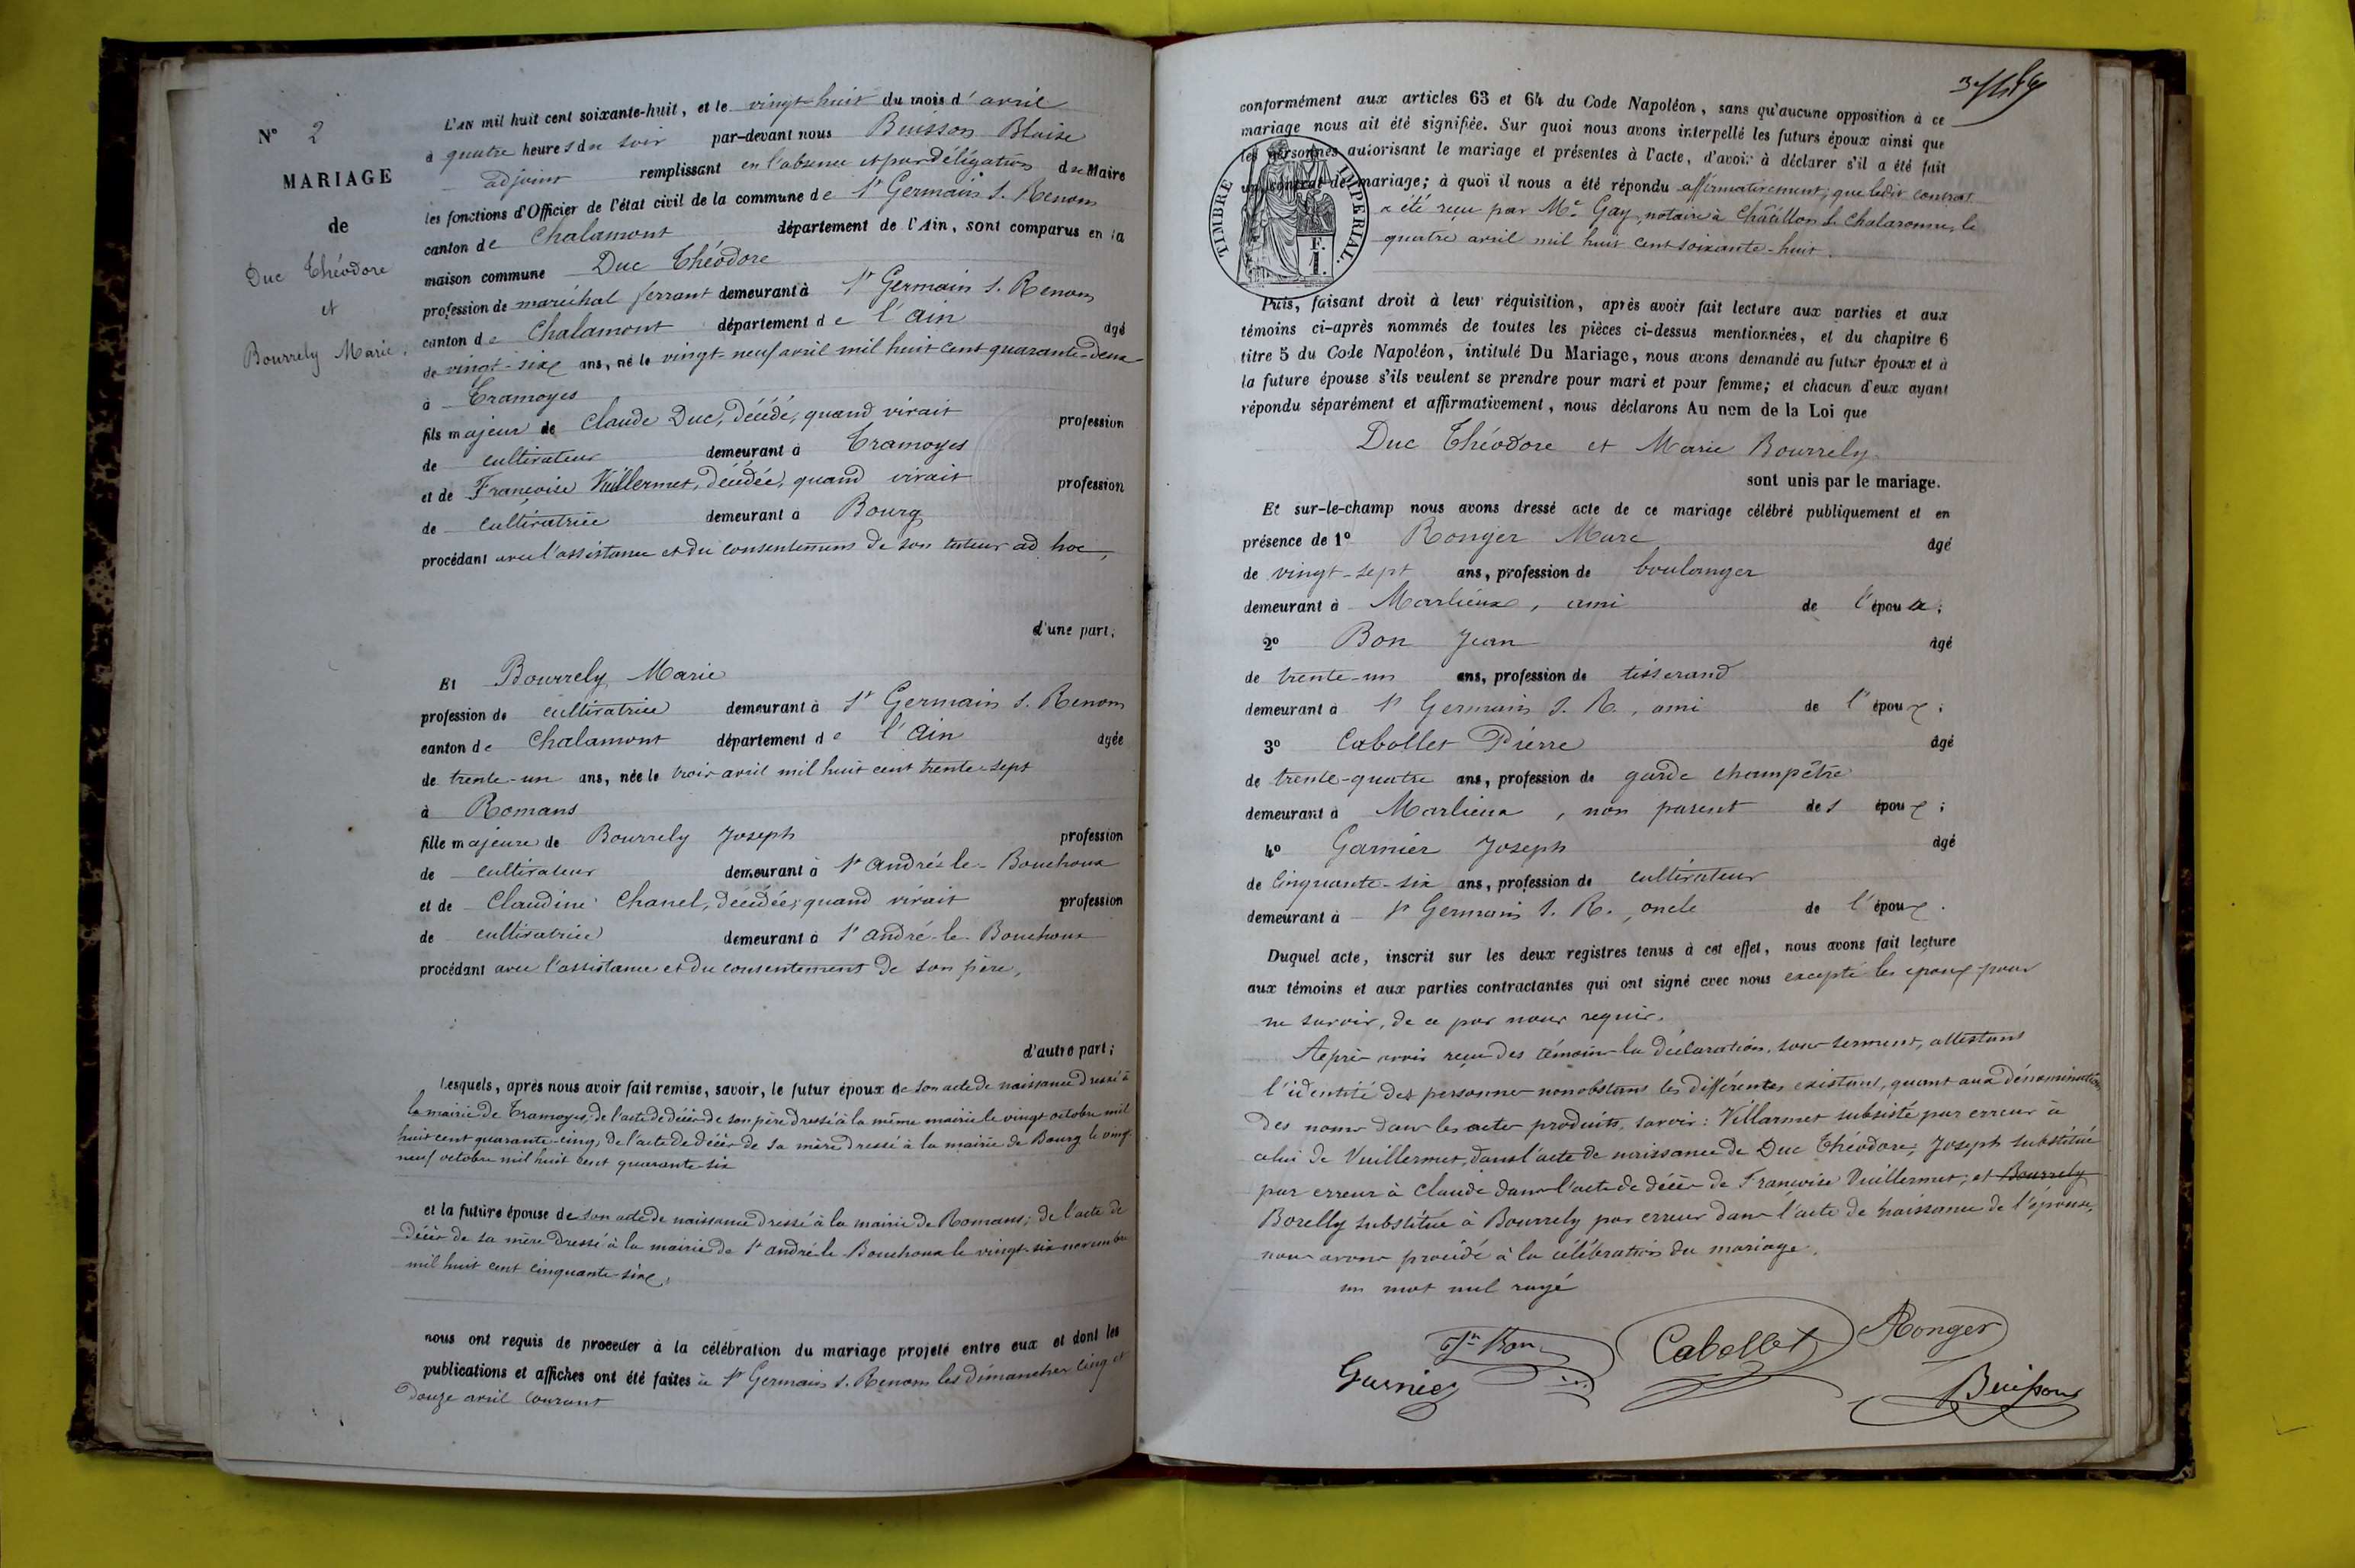 N° 2
MARIAGE
de
Duc Théodore
et
Bourrely Marie.
L'AN mil huit cent soixante-huit, et le vingt-huit du mois d'avril
à quatre heures du soir par-devant nous Buisson Blaise
adjoint remplissant en l'absence et par délégation du Maire
les fonctions d'Officier de l'état civil de la commune de St Germain s. Renom
canton de Chalamont département de l'Ain, sont comparus en la
maison commune Duc Théodore
profession de maréchal ferrant demeurant à St Germain s. Renom
canton de Chalamont département de l'Ain âgé
de vingt-six ans, né le vingt-neuf avril mil huit cent quarante-deux
à Tramoyes
fils majeur de Claude Duc, décédé, quand vivait profession
de cultivateur demeurant à Tramoyes
et de Françoise Vuillermet, décédée, quand vivait profession
de cultivatrice demeurant à Bourg
procédant avec l'assistance et du consentement de son tuteur ad hoc,
d'une part;
Et Bourrely Marie
profession de cultivatrice demeurant à St Germain s. Renom
canton de Chalamont département de l'Ain âgée
de trente-un ans, née le trois avril mil huit cent trente-sept
à Romans
fille majeure de Bourrely Joseph profession
de cultivateur demeurant à St André-le-Bouchoux
et de Claudine Chanel, décédée, quand vivait profession
de cultivatrice demeurant à St André-le-Bouchoux
procédant avec l'assistance et du consentement de son père,
d'autre part;
Lesquels, après nous avoir fait remise, savoir, le futur époux de son acte de naissance dressé à
la mairie de Tramoyes, de l'acte de décès de son père dressé à la même mairie le vingt octobre mil
huit cent quarante-cinq, de l'acte de décès de sa mère dressé à la mairie de Bourg le vingt
neuf octobre mil huit cent quarante-six
et la future épouse de son acte de naissance dressé à la mairie de Romans; de l'acte de
décès de sa mère dressé à la mairie de St André-le-Bouchoux le vingt-six novembre
mil huit cent cinquante-six,
nous ont requis de procéder à la célébration du mariage projeté entre eux et dont les
publications et affiches ont été faites à St Germain s. Renom les dimanches cinq et
douze avril courant
conformément aux articles 63 et 64 du Code Napoléon, sans qu'aucune opposition à ce
mariage nous ait été signifiée. Sur quoi nous avons interpellé les futurs époux ainsi que
les personnes autorisant le mariage et présentes à l'acte, d'avoir à déclarer s'il a été fait
un contrat de mariage; à quoi il nous a été répondu affirmativement; que ledit contrat
a été reçu par Me Gay, notaire à Châtillon s. Chalaronne, le
quatre avril mil huit cent soixante-huit.
TIMBRE IMPERIAL.
F.
1.
Puis, faisant droit à leur réquisition, après avoir fait lecture aux parties et aux
témoins ci-après nommés de toutes les pièces ci-dessus mentionnées, et du chapitre 6
titre 5 du Code Napoléon, intitulé Du Mariage, nous avons demandé au futur époux et à
la future épouse s'ils veulent se prendre pour mari et pour femme; et chacun d'eux ayant
répondu séparément et affirmativement, nous déclarons Au nom de la Loi que
Duc Théodore et Marie Bourrely
sont unis par le mariage.
Et sur-le-champ nous avons dressé acte de ce mariage célébré publiquement et en
présence de 1° Ronger Marc âgé
de vingt-sept ans, profession de boulanger
demeurant à Marlieux, ami de l'époux;
2° Bon Jean âgé
de trente-un ans, profession de tisserand
demeurant à St Germain s. R., ami de l'époux;
3° Cabollet Pierre âgé
de trente-quatre ans, profession de garde champêtre
demeurant à Marlieux, non parent des époux;
4° Garnier Joseph âgé
de cinquante-six ans, profession de cultivateur
demeurant à St Germain s. R., oncle de l'époux.
Duquel acte, inscrit sur les deux registres tenus à cet effet, nous avons fait lecture
aux témoins et aux parties contractantes qui ont signé avec nous excepté les époux pour
ne savoir, de ce par nous requis.
Après avoir reçu des témoins la déclaration, sous serment, attestant
l'identité des personnes nonobstant les différentes existant, quant aux dénominations
des noms dans les actes produits, savoir: Villarmet subsisté par erreur à
celui de Vuillermet, dans l'acte de naissance de Duc Théodore; Joseph substitué
par erreur à Claude dans l'acte de décès de Françoise Vuillermet; et Bourrely
Borelly substitué à Bourrely par erreur dans l'acte de naissance de l'épouse,
nous avons procédé à la célébration du mariage.
un mot nul rayé
Jn Bon Cabollet Ronger
Garnier Buisson